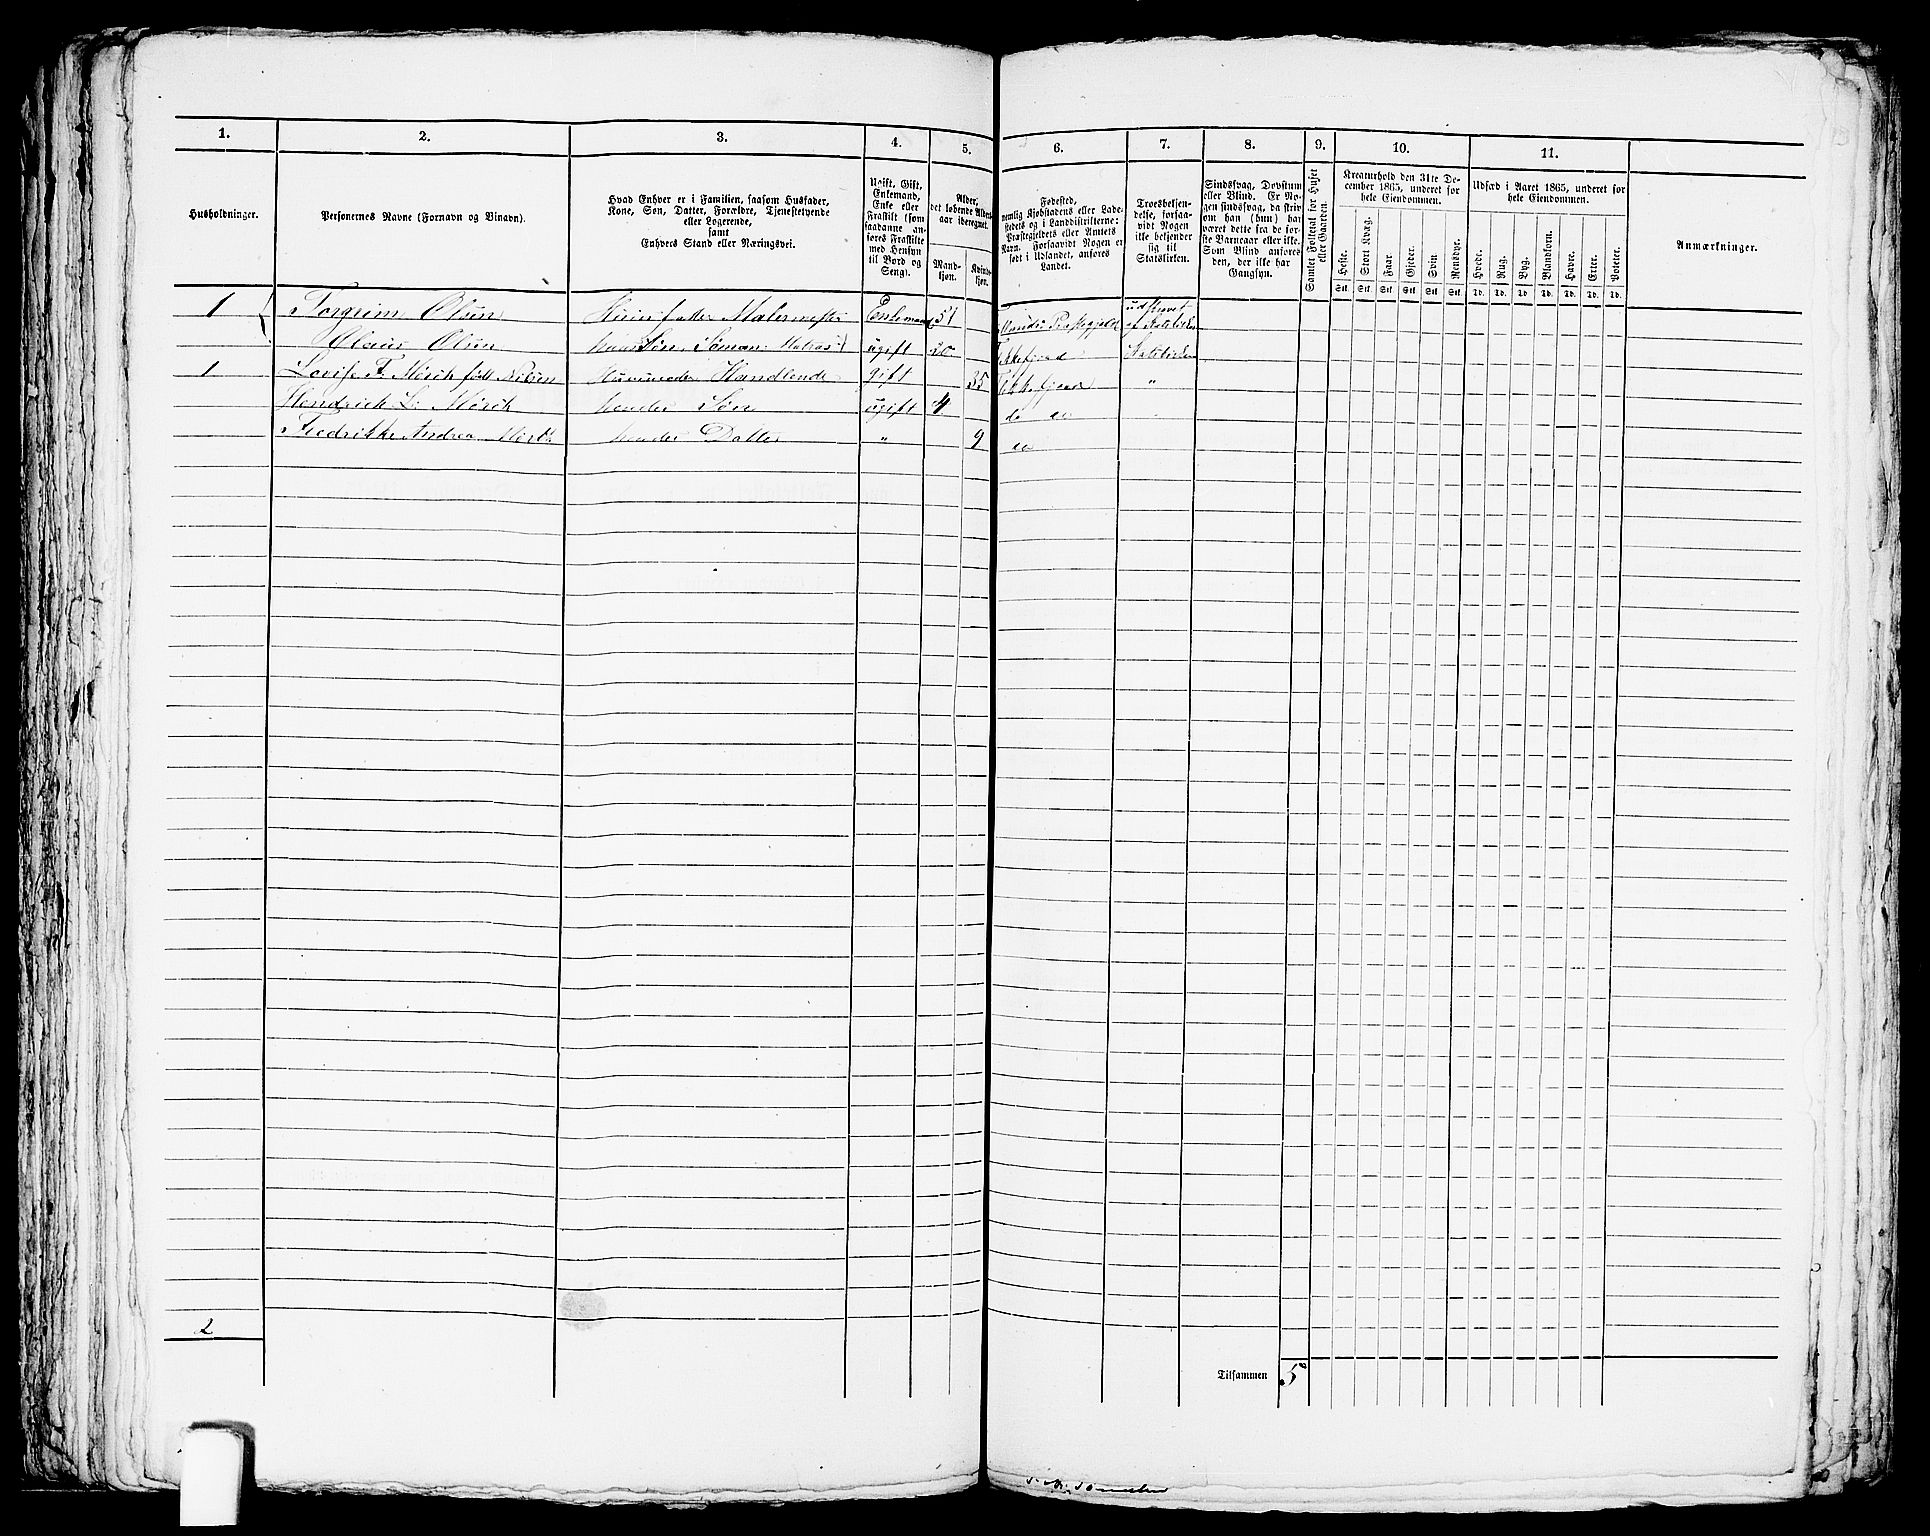 1. 2. 3. 4. 5. 6. 7. 8. 9. 10. 11.
Husholdninger.
Personernes Navne (Fornavn og Binavn).
Hvad Enhver er i Familien, saasom Husfader,
Kone, Søn, Datter, Forældre, Tjenestetyende
eller Logerende,
samt
Enhvers Stand eller Næringsvei.
Ugift, Gift,
Enkemand,
Enke eller
Fraskilt (som
saadanne an-
føres Fraskilte
med Hensyn
til Bord og
Seng).
Alder,
det løbende Alders-
aar iberegnet.
Mand-
kjøn.
Kvinde-
kjøn.
Fødested,
nemlig Kjøbstadens eller Lade-
stedets og i Landdistrikterne:
Præstegjeldets eller Amtets
Navn. Forsaavidt Nogen er
født i Udlandet, anføres
Landet.
Troesbekjen-
delse, forsaa-
vidt Nogen
ikke bekjender
sig til
Statskirken.
Sindssvag, Døvstum
eller Blind. Er No-
gen sindssvag, da skriv
om han (hun) har
været dette fra de før-
ste Barneaar eller ikke.
Som Blind anføres
den, der ikke har
Gangsyn.
Samlet Folketal for Huset
eller Gaarden.
Kreaturhold den 31te De-
cember 1865, underet for
hele Eiendommen.
Heste. Stort Kvæg. Faar. Gjeder. Svin. Rensdyr.
Stk. Stk. Stk. Stk. Stk. Stk.
Udsæd i Aaret 1865, underet for
hele Eiendommen.
Hvede. Rug. Byg. Blandkorn. Havre. Erter. Poteter.
Td. Td. Td. Td. Td. Td. Td.
Anmærkninger.
1 Torgrim Olsen Huusfatter Malermester Enkemand 51 Præstegjeld udtraadt af Statskirken
Olaus Olsen hans Søn, Sømand Matros ugift 20 Statskirken
1 Lovise F. Mörch född Nilsen Huusmoder Handlende gift 35 "
Hendrich L. Mörch hendes Søn ugift 4 do
Fredrikke Andrea Mörch hendes Datter " 9 do
2
Tilsammen 5